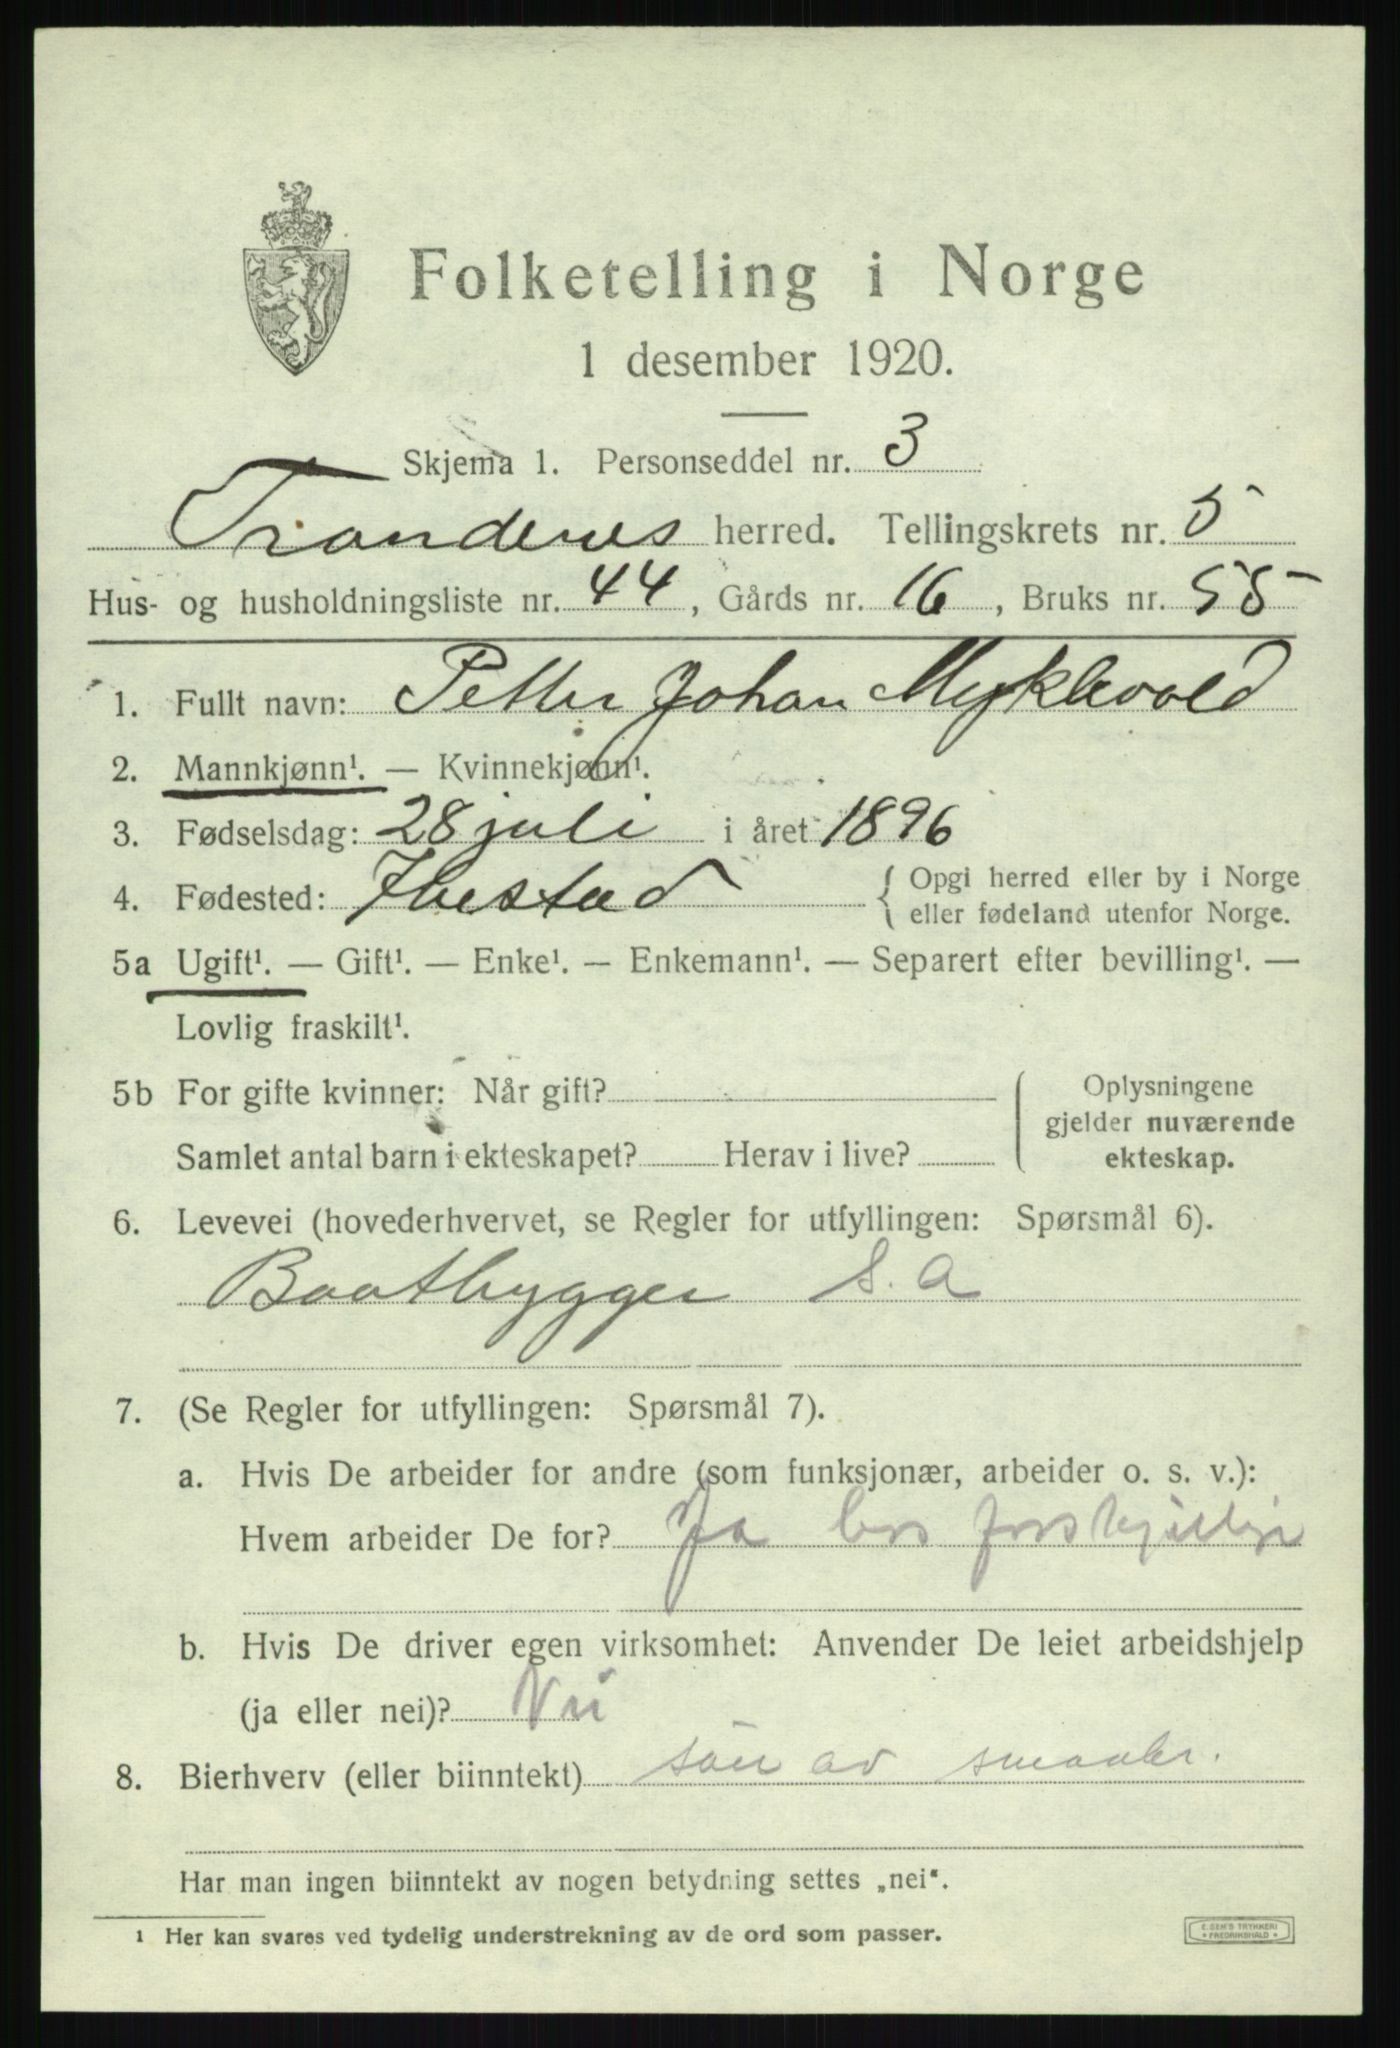 Folketelling i Norge
1 desember 1920.
Skjema 1. Personseddel nr. 3
Trondenes herred. Tellingskrets nr. 5
Hus- og husholdningsliste nr. 44, Gårds nr. 16, Bruks nr. 55
1. Fullt navn: Petter Johan Myklevold
2. Mannkjønn¹. — Kvinnekjønn¹.
3. Fødselsdag: 28 juli i året 1896
4. Fødested: Ibestad { Opgi herred eller by i Norge
eller fødeland utenfor Norge.
5a Ugift¹. — Gift¹. — Enke¹. — Enkemann¹. — Separert efter bevilling¹. —
Lovlig fraskilt¹.
5b For gifte kvinner: Når gift?
Samlet antal barn i ekteskapet? Herav i live?
Oplysningene
gjelder nuværende
ekteskap.
6. Levevei (hovederhvervet, se Regler for utfyllingen: Spørsmål 6).
Baatbygger S. A
7. (Se Regler for utfyllingen: Spørsmål 7).
a. Hvis De arbeider for andre (som funksjonær, arbeider o. s. v.):
Hvem arbeider De for? Ja hos forskjellige
b. Hvis De driver egen virksomhet: Anvender De leiet arbeidshjelp
(ja eller nei)? Nei
8. Bierhverv (eller biinntekt) sön av smaabr.
Har man ingen biinntekt av nogen betydning settes „nei".
¹ Her kan svares ved tydelig understrekning av de ord som passer.
E. SEM'S TRYKKERI
FREDRIKSHALD